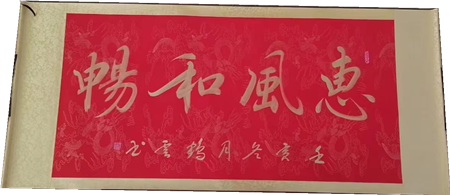 惠風和暢
壬寅冬月鹤雲书